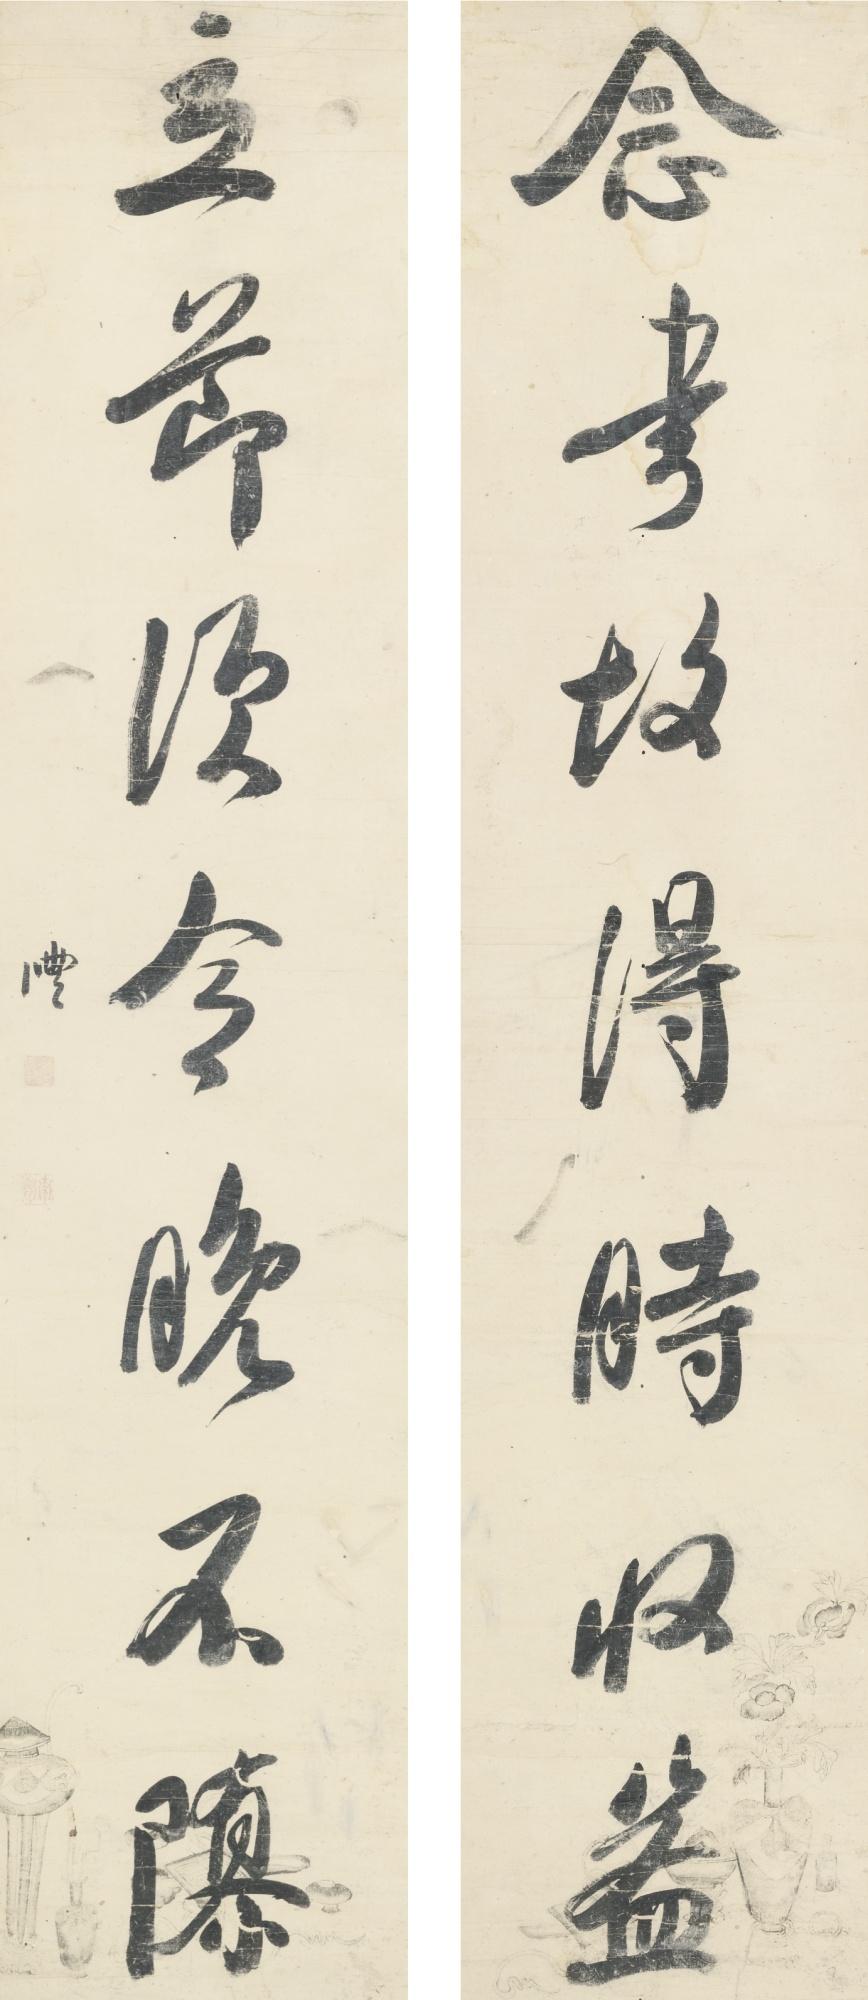 念書故得時收益
立節須令晚不隳
澧